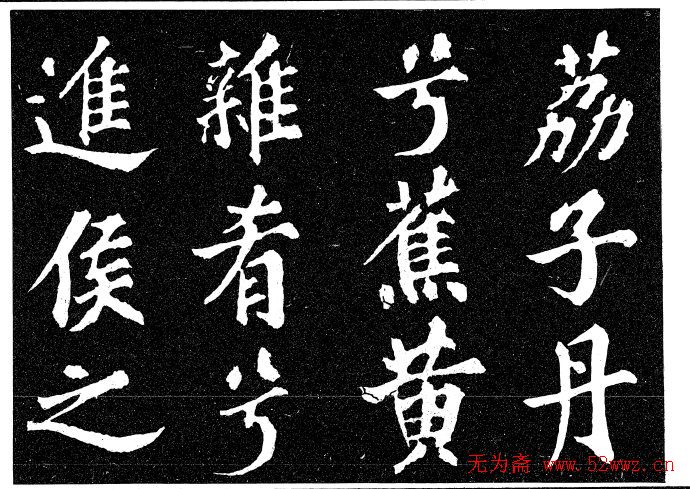 荔子丹
兮蕉黄
雜肴兮
進侯之
无为斋 www.52wwz.cn